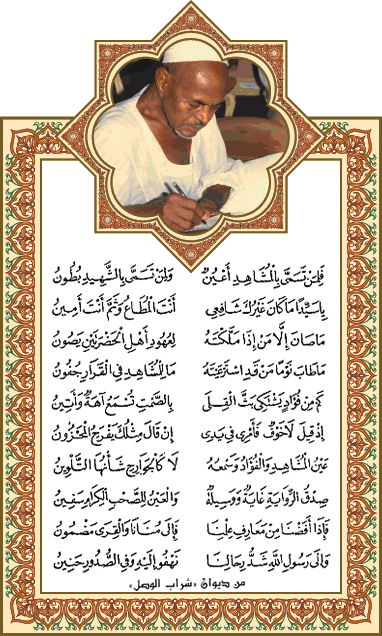 فلمن تسمى بالمشاهد أعين ولمن تسمى بالشهيد بطون
يا سيدا ما كان غيرك شافعي أنت المطاع وثم أنت أمين
ما صان إلا من إذا ملكته لعهود أهل الحضرتين يصون
ما طاب نوما من قد استرعيته ما للمشاهد في القرار جفون
كم من فؤاد يشتكي بث القلى بالصمت تسمع آهة وأنين
إذ قيل لا خوف فأمري في يدي إن قال مثلك يفرح المحزون
عين المشاهد والفؤاد وسمعه لا كالجوارح شأنها التلوين
صدق الرواية غاية ووسيلة والعين للصحب الكرام سفين
فإذا أفضنا من معارف علمنا فإلى منانا والقرى مضمون
وإلى رسول الله شد رحالنا نهفو إليه وفي الصدور حنين
من ديوان «شراب الوصل»